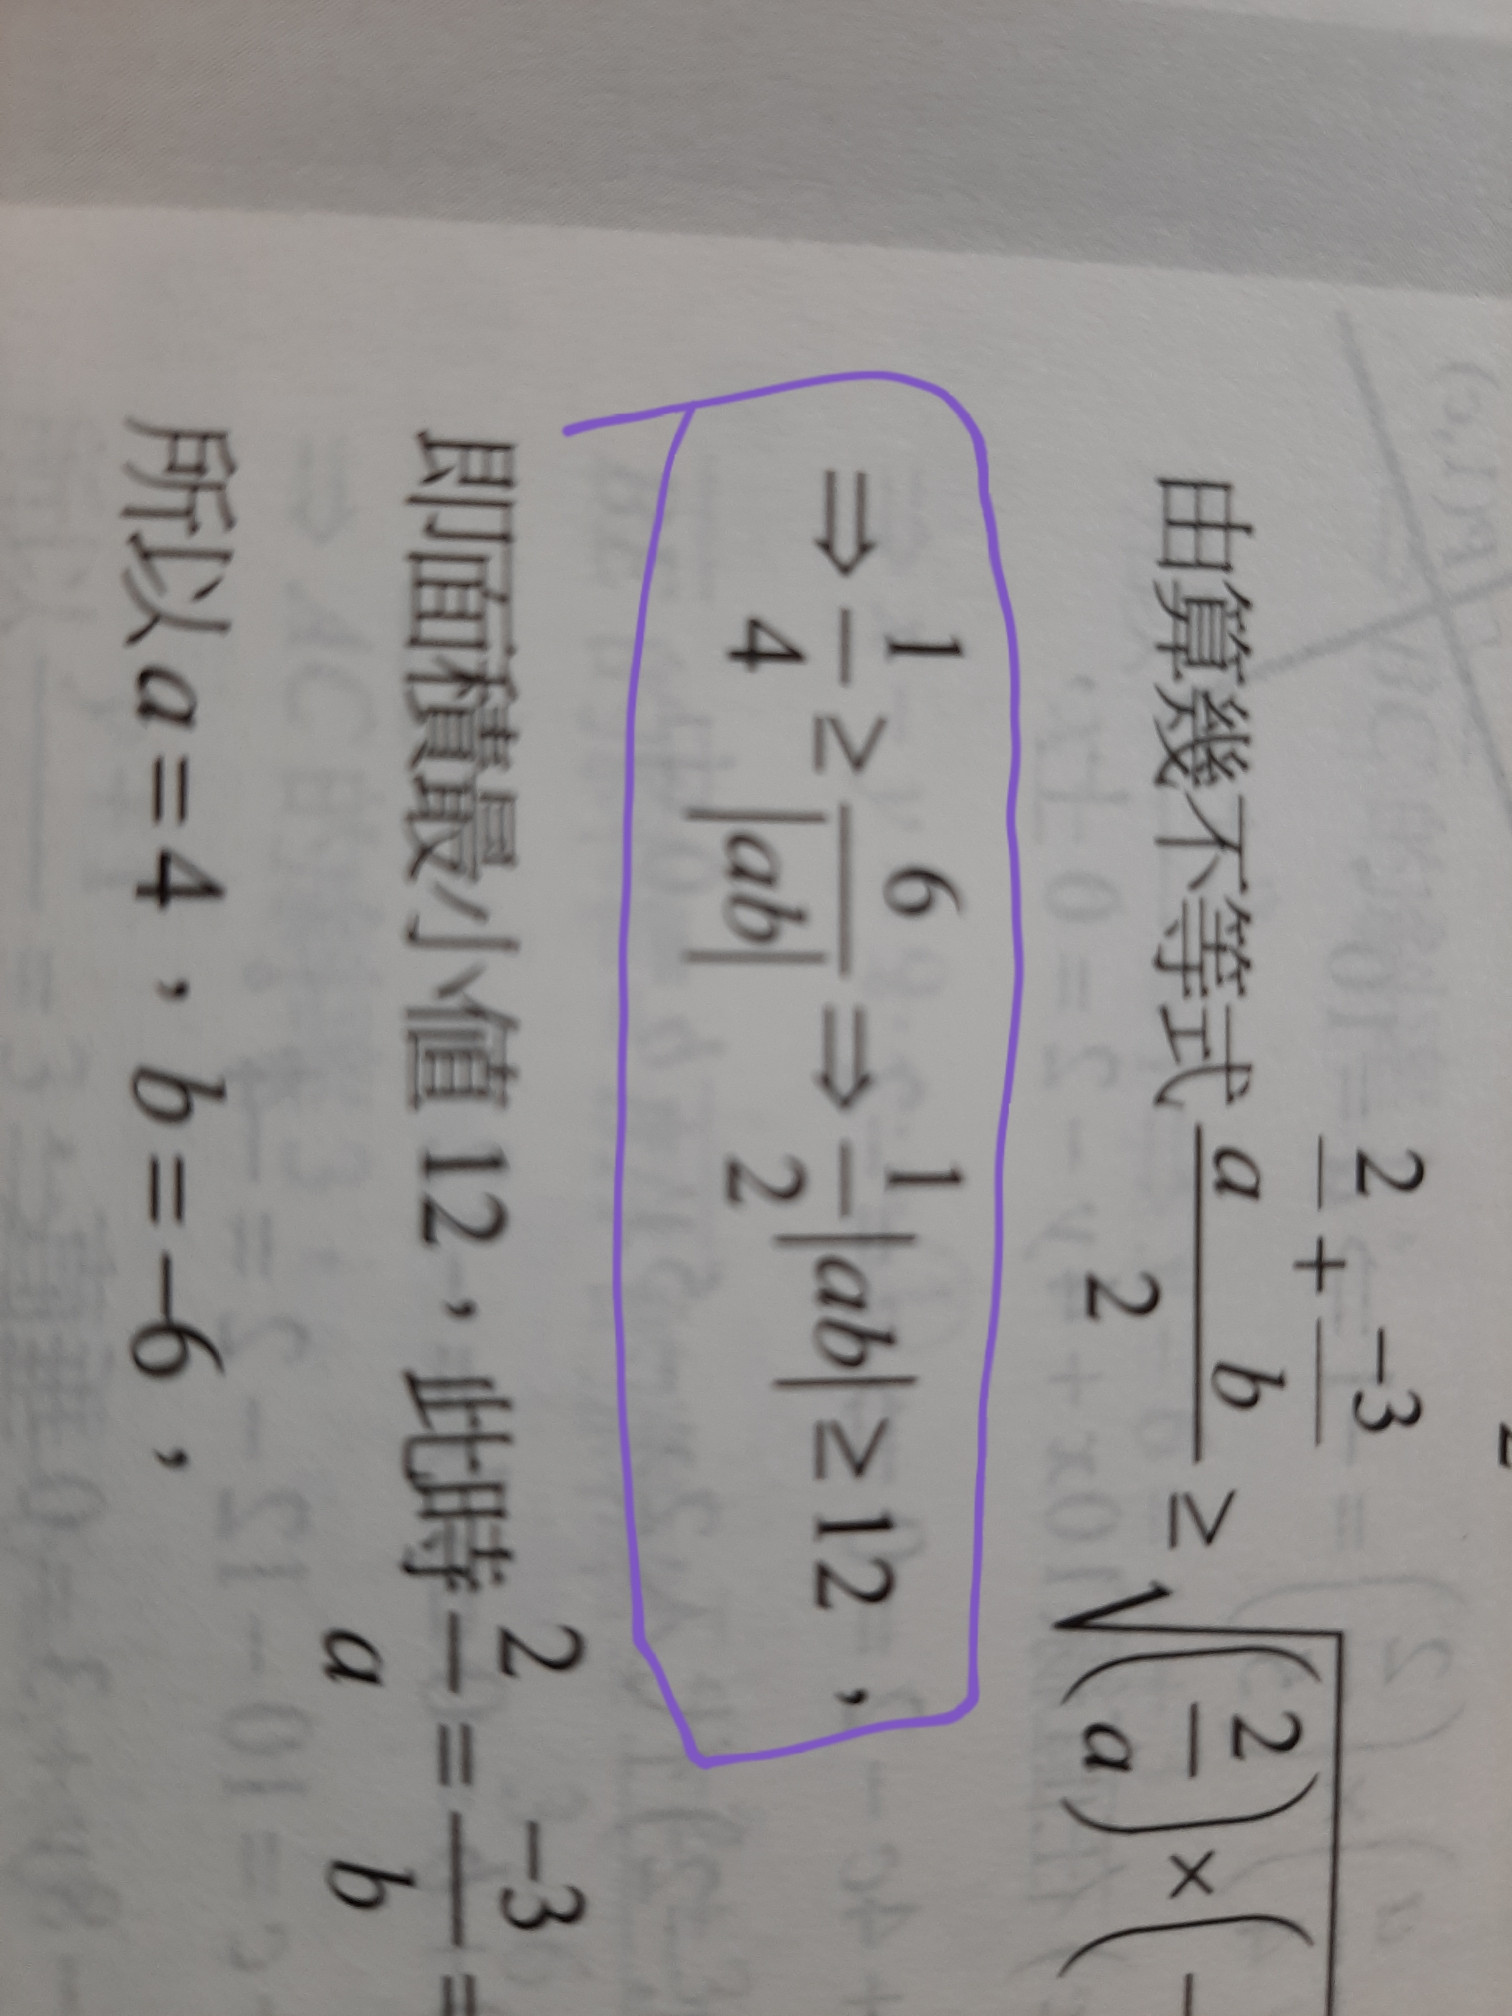 由算幾不等式 \frac{\frac{2}{a}+\frac{-3}{b}}{2} ≥ \sqrt{(\frac{2}{a})×(
⇒ \frac{1}{4} ≥ \frac{6}{|ab|} ⇒ \frac{1}{2}|ab| ≥ 12，
即面積最小值 12，此時 \frac{2}{a} = \frac{-3}{b} =
所以 a = 4，b = −6，